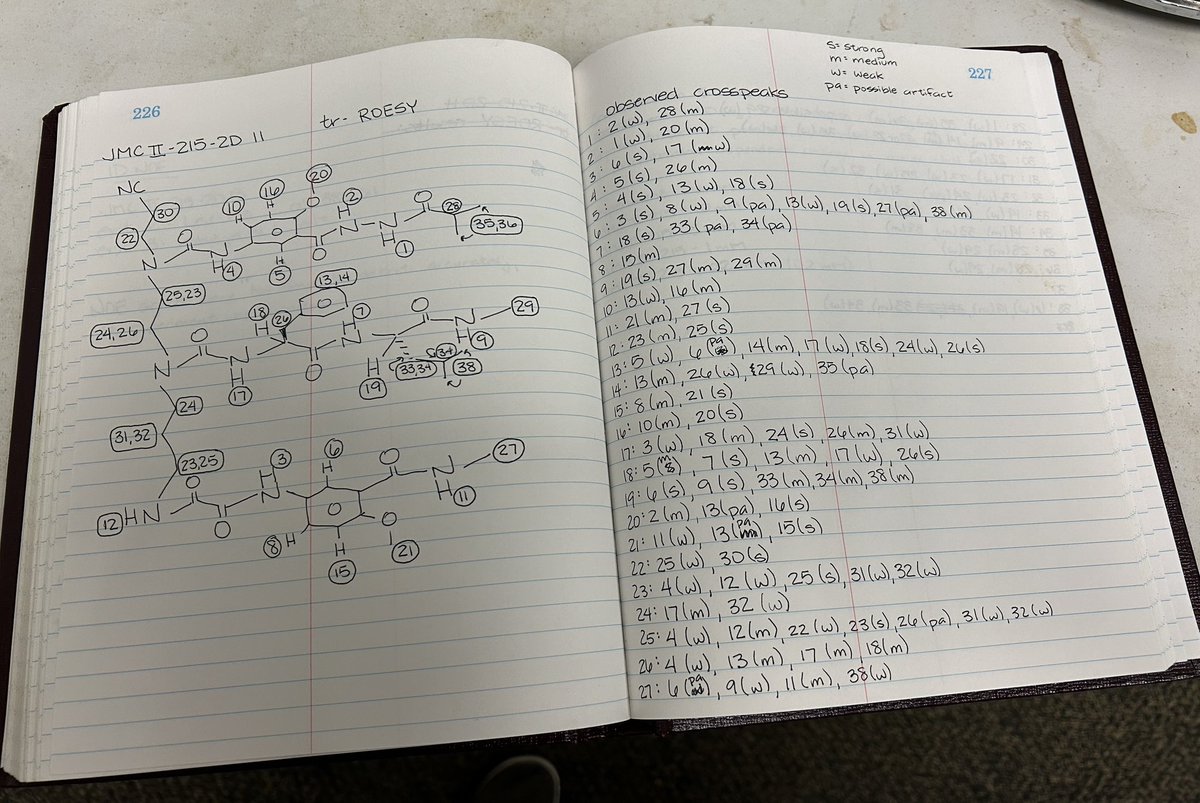 226
JMC II-215-2D 11
tr-ROESY
NC
30
22
10
16
20
O
H
2
O
28
35,36
O
H
H
O
N
N
N
N
H
4
H
5
O
H
1
25,23
13,14
24,26
18
H
26
H
7
O
29
O
N
N
H
9
N
N
H
17
O
H
19
33,34
34
38
24
31,32
23,25
H
3
6
H
O
27
O
N
N
H
11
12
HN
O
O
8
H
H
15
21
227
s= strong
m= medium
w= weak
pa= possible artifact
observed crosspeaks
1: 2(w), 28(m)
2: 1(w), 20(m)
3: 6(s), 17(w)
4: 5(s), 26(m)
5: 4(s), 13(w), 18(s)
6: 3(s), 8(w), 9(pa), 13(w), 19(s), 27(pa), 38(m)
7: 18(s), 33(pa), 34(pa)
8: 15(m)
9: 19(s), 27(m), 29(m)
10: 13(w), 16(m)
11: 21(m), 27(s)
12: 23(m), 25(s)
13: 5(w), 6(pa), 14(m), 17(w), 18(s), 24(w), 26(s)
14: 13(m), 26(w), 29(w), 35(pa)
15: 8(m), 21(s)
16: 10(m), 20(s)
17: 3(w), 18(m), 24(s), 26(m), 31(w)
18: 5(m), 7(s), 13(m), 17(w), 26(s)
19: 6(s), 9(s), 33(m), 34(m), 38(m)
20: 2(m), 13(pa), 16(s)
21: 11(w), 13(pa), 15(s)
22: 25(w), 30(s)
23: 4(w), 12(w), 25(s), 31(w), 32(w)
24: 17(m), 32(w)
25: 4(w), 12(m), 22(w), 23(s), 26(pa), 31(w), 32(w)
26: 4(w), 13(m), 17(m), 18(m)
27: 6(pa), 9(w), 11(m), 38(w)